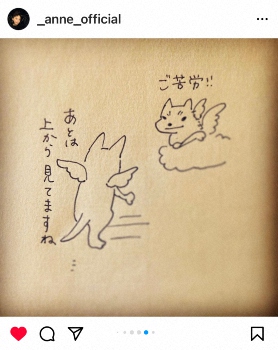 _anne_official
ご苦労!!
あとは
上から見てますね
…